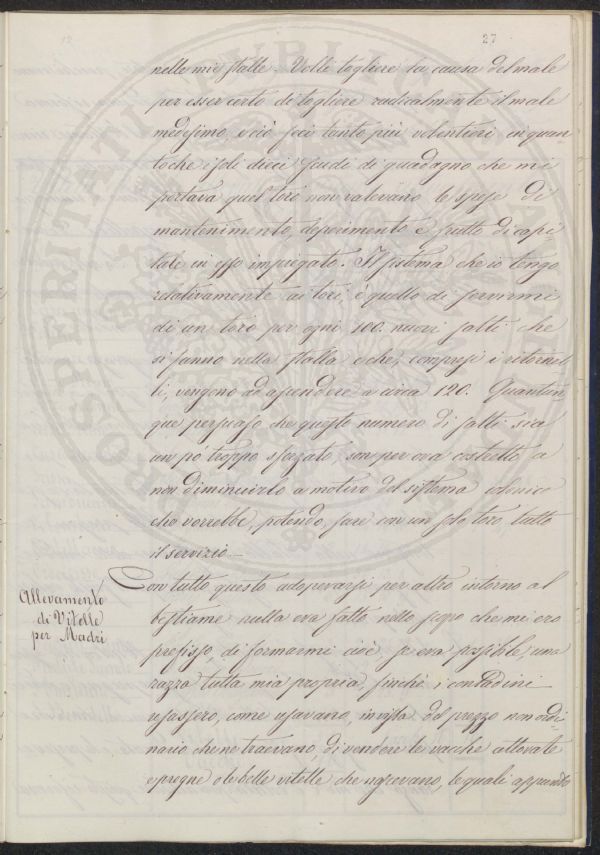 27
nelle mie stalle. Volli togliere la causa del male
per esser certo di togliere radicalmente il male
medesimo, e ciò feci tanto più volentieri in quan
toche i soli dieci scudi di guadagno che mi
portava quel toro non valevano le spese di
mantenimento, deperimento e frutto di capi
tale in esso impiegato. Il sistema che io tengo
relativamente ai tori, è quello di servirmi
di un toro per ogni 100. nuovi salti che
si fanno nella stalla e che, compresi i ritornel
li, vengono ad ascendere a circa 120. Quantun
que persuaso che questo numero di salti sia
un po troppo sforzato, son per ora costretto a
non diminuirlo a motivo del sistema colonico
che vorrebbe, potendo, fare con un solo toro tutto
il servizio.
Allevamento
di Vitelle
per Madri
Con tutto questo adoperarsi per altro intorno al
bestiame nulla era fatto nello scopo che mi ero
prefisso, di formarmi cioè, se era possibile, una
razza tutta mia propria, finchè i contadini
usassero, come usavano, in vista del prezzo non ordi
nario che ne traevano, di vendere le vacche attorate
e pregne o le belle vitelle che nascevano, le quali
PROSPERITATI PUBLICAE